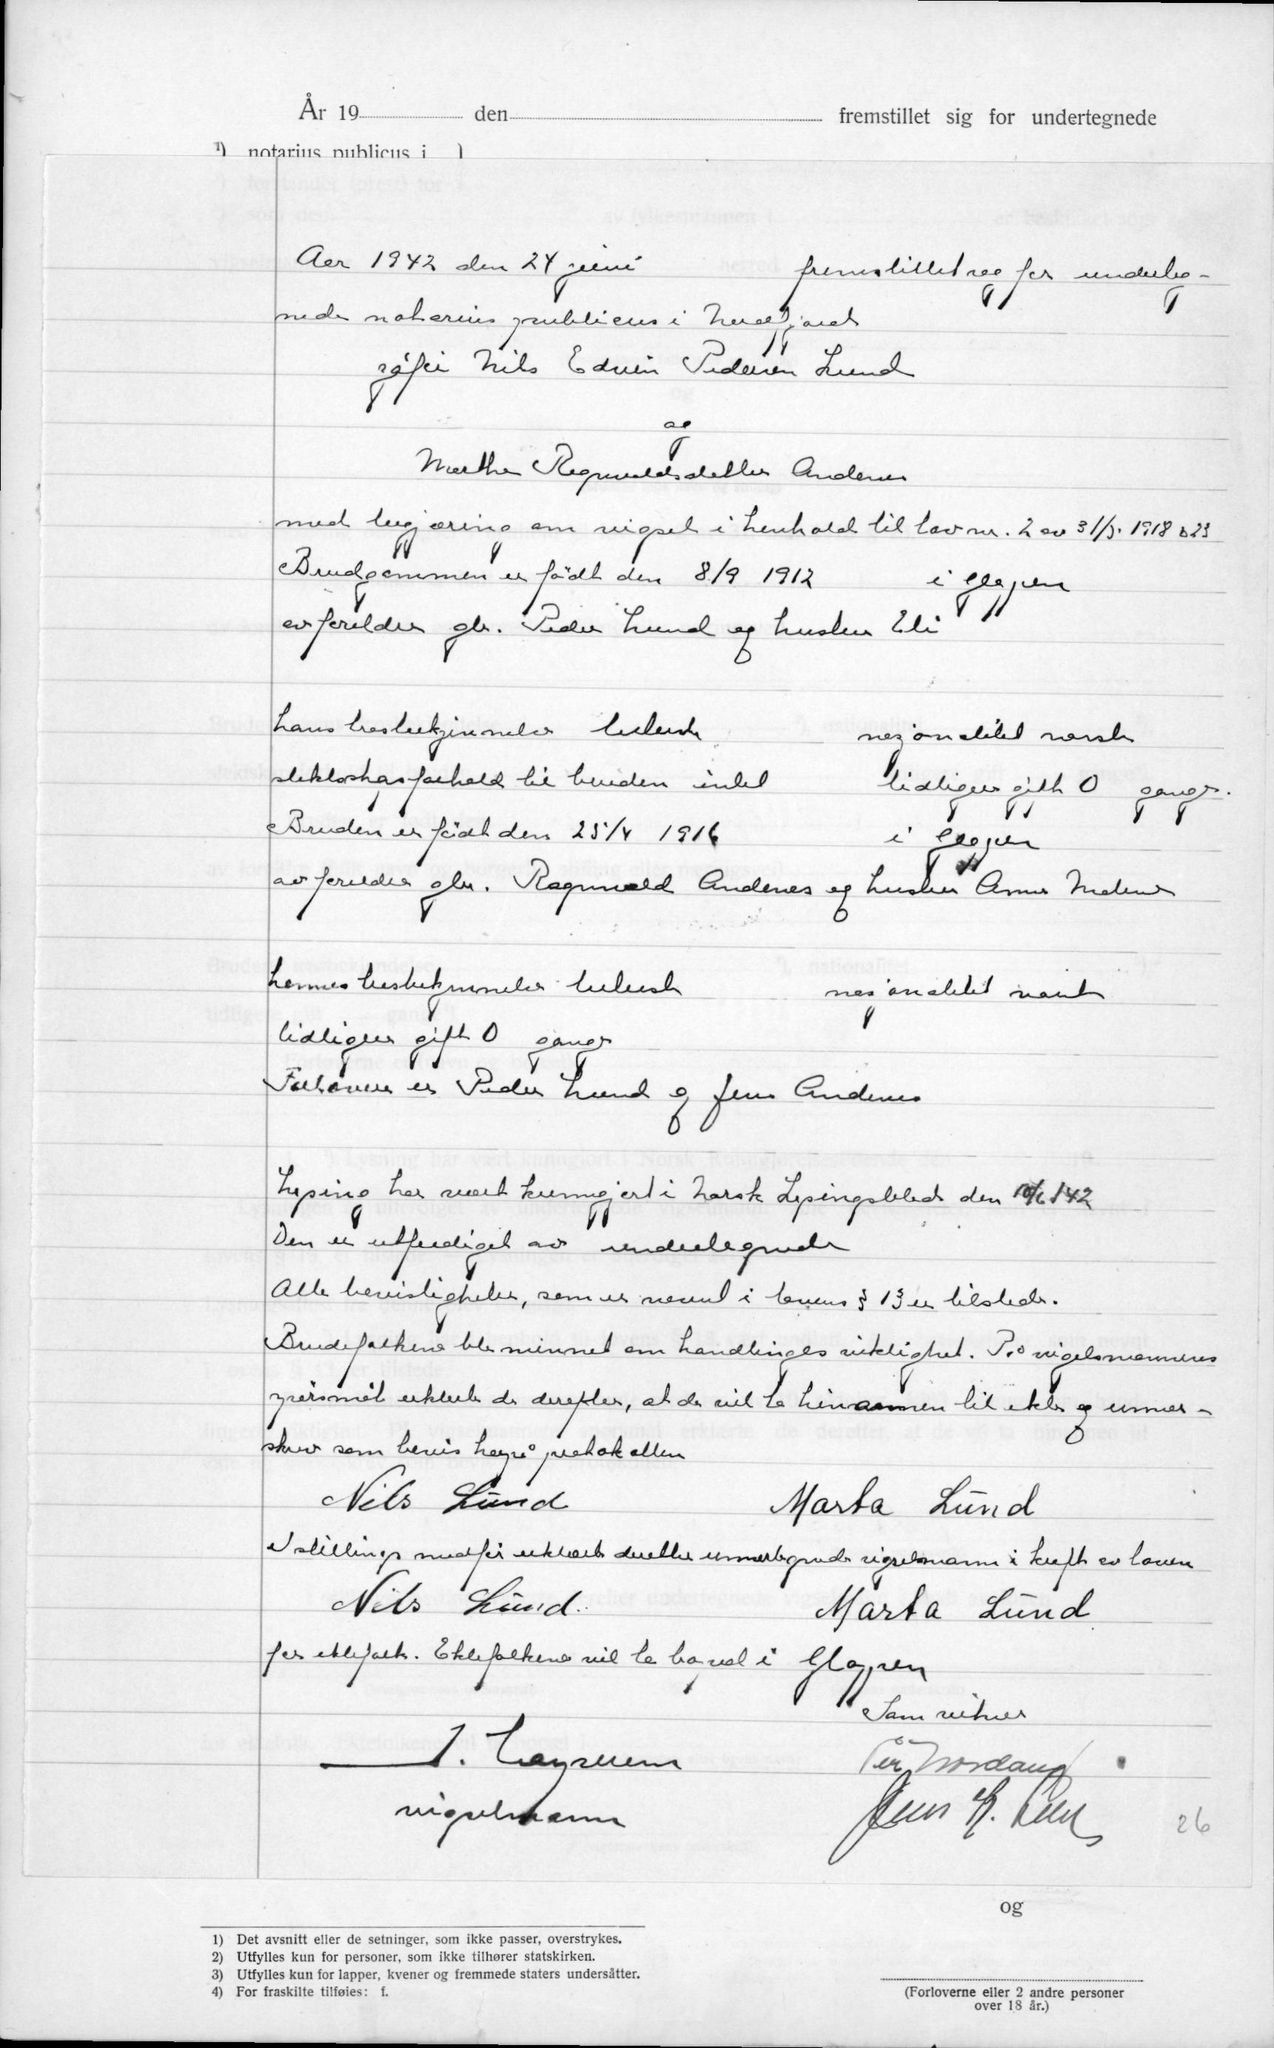 År 19 den fremstillet sig for undertegnede
¹) notarius publicus i
Aar 1942 den 24 juni fremstillet seg for underteg-
nede notarius publicus i Nordfjord
sjåfør Nils Edvin Pedersen Lund
og
Marthe Ragnvaldsdatter Andenes
med begjæring om vigsel i henhold til lov nr. 2 av 31/5. 1918 § 23
Brudgommen er født den 8/9 1912 i Gloppen
av foreldre gbr. Peder Lund og hustru Eli
hans trosbekjennelse luthersk nasjonalitet norsk
slektskapsforhold til bruden intet tidligere gift 0 gange.
Bruden er født den 25/4 1916 i Gloppen
av foreldre gbr. Ragnvald Andenes og hustru Anna
hennes trosbekjennelse luthersk nasjonalitet norsk
tidligere gift 0 gange
Forlovere er Peder Lund og Jens Andenes
Lysing har vært kunngjort i Norsk Lysingsblad den 10/6 1942
Den er utferdiget av undertegnede
Alle bevisligheter, som er nevnt i lovens § 13 er tilstede.
Brudefolkene ble minnet om handlinges viktighet. På vigselsmannens
spørsmål erklærte de derefter, at de vil ta hinannen til ekte og under-
skrev som bevis herpå protokollen
Nils Lund Marta Lund
I stillings medfør erklærte deretter undertegnede vigselsmann i kraft av loven
Nils Lund Marta Lund
for ektefolk. Ektefolkene vil ta bopel i Gloppen
Som vitner
J.
vigselmann Jens
26
og
1) Det avsnitt eller de setninger, som ikke passer, overstrykes.
2) Utfylles kun for personer, som ikke tilhører statskirken.
3) Utfylles kun for lapper, kvener og fremmede staters undersåtter.
4) For fraskilte tilføies: f.
(Forloverne eller 2 andre personer
over 18 år.)